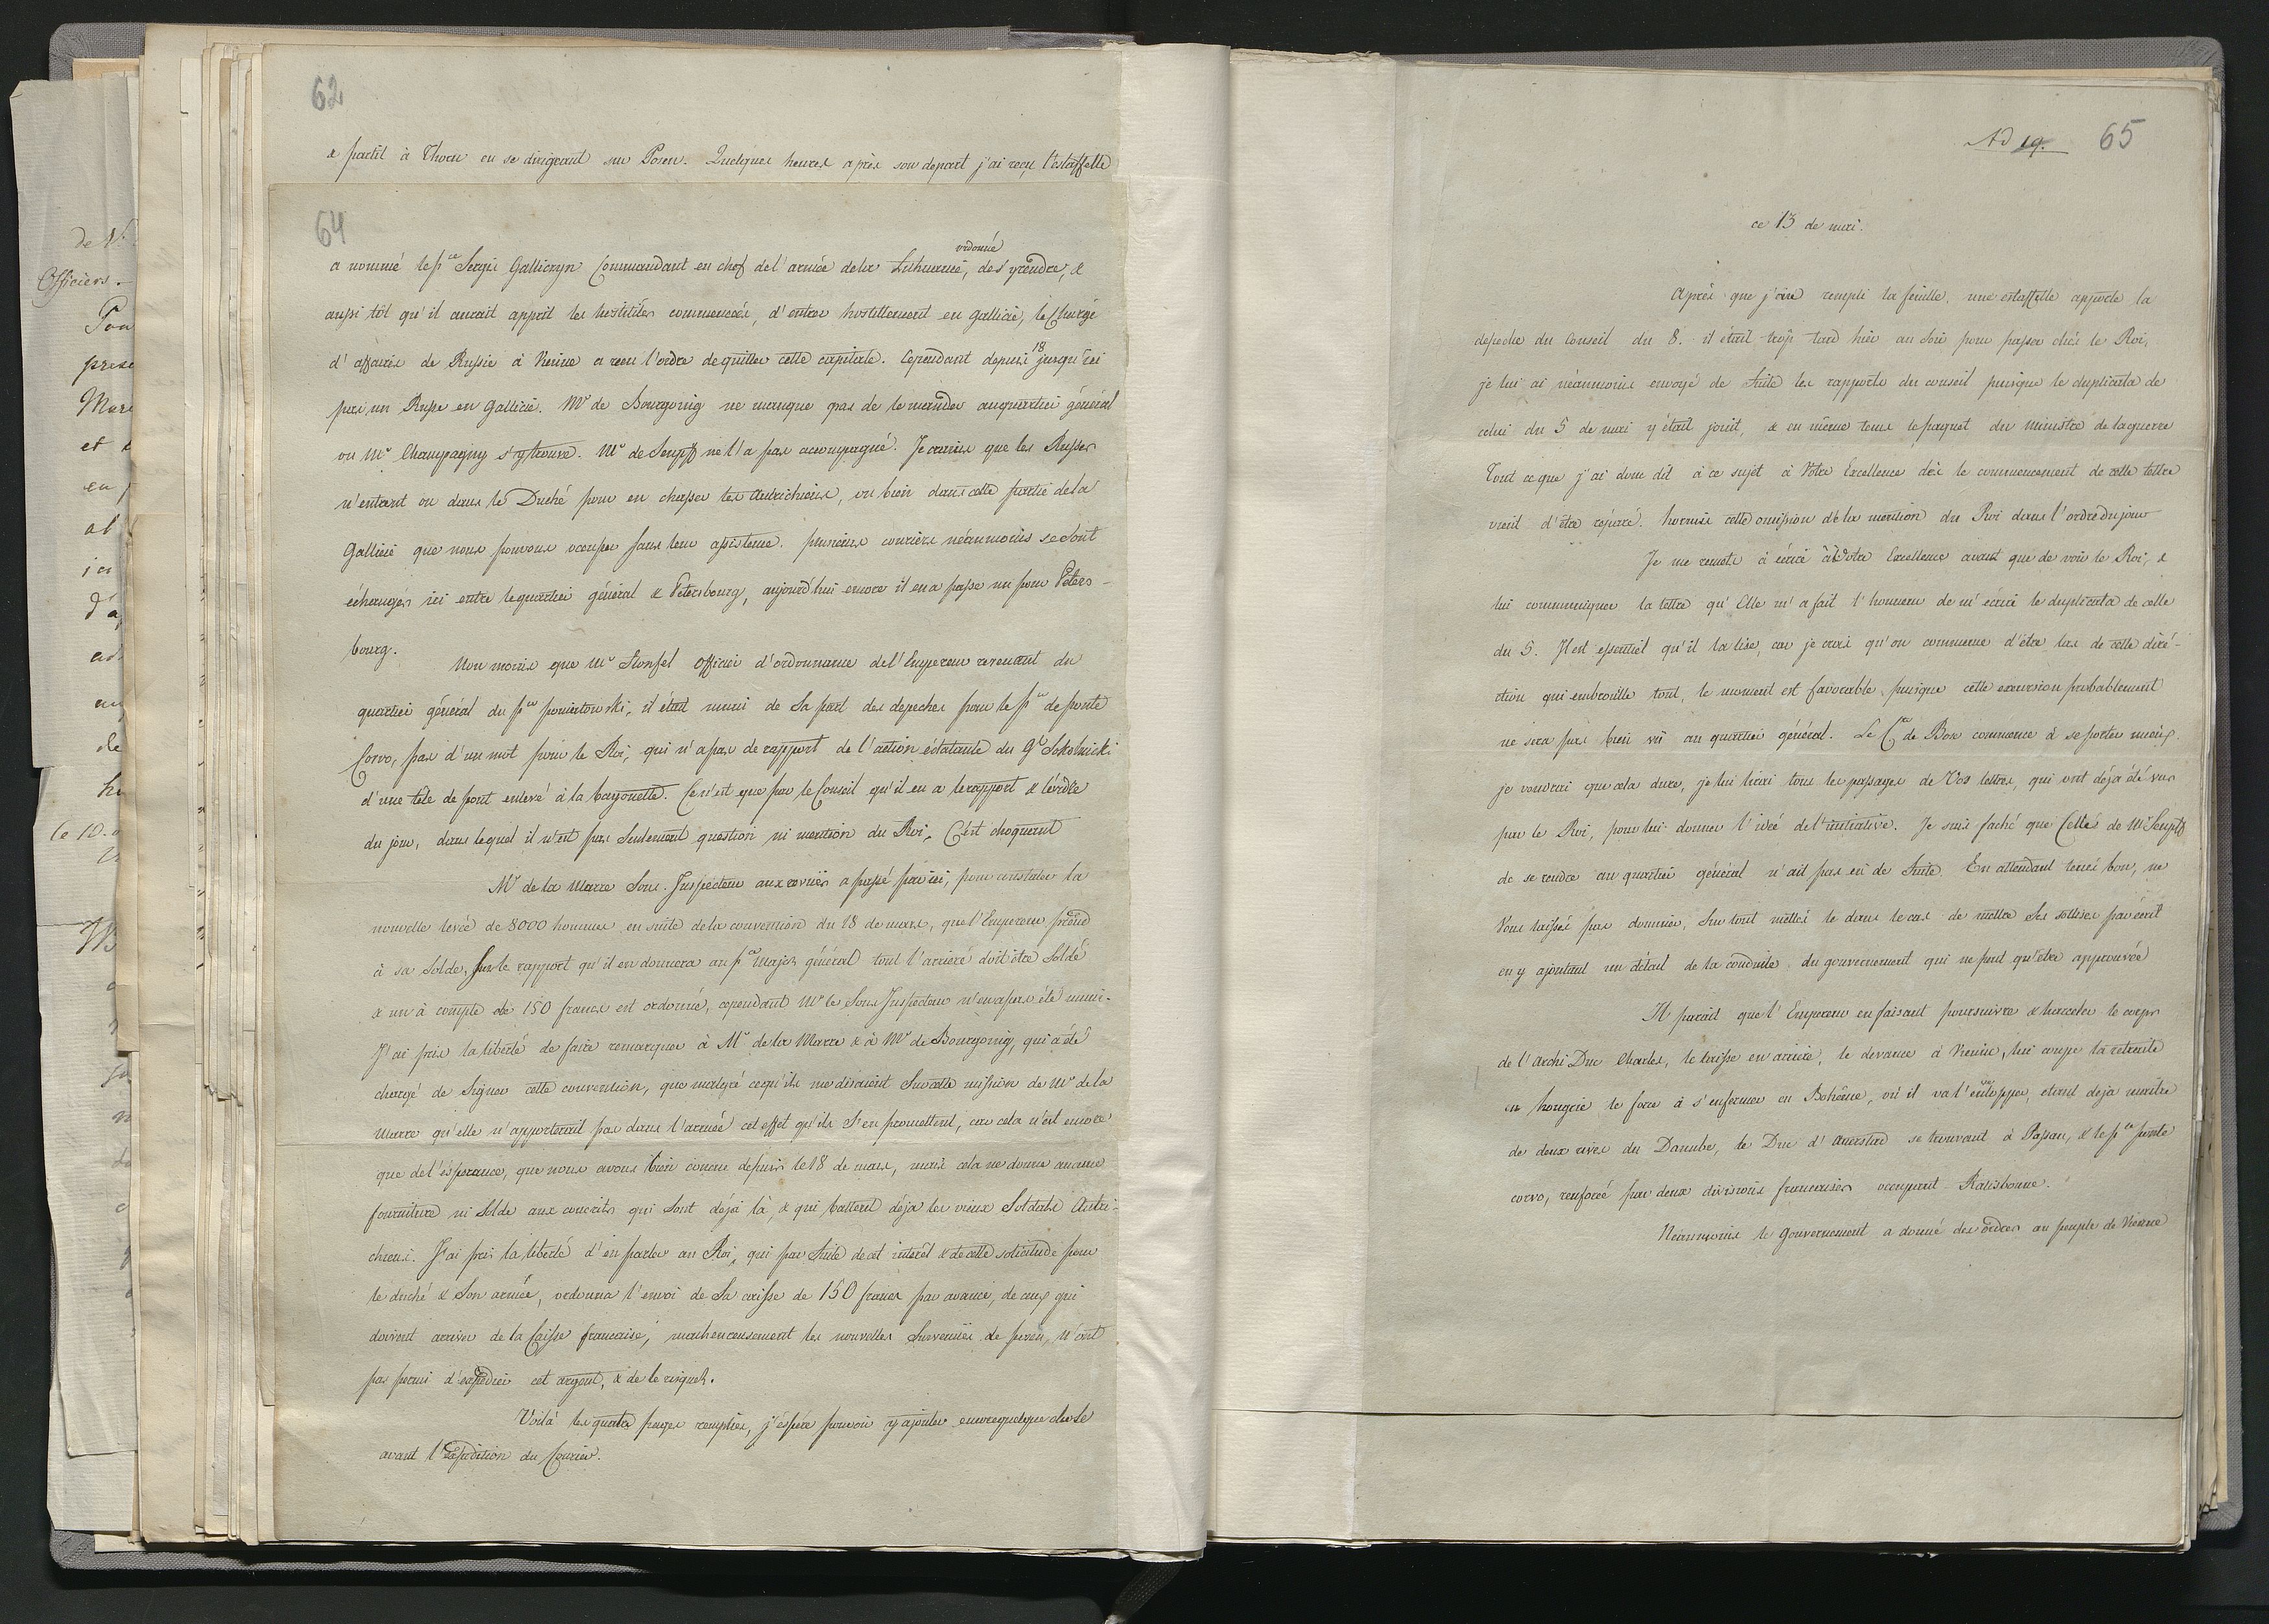 62
& partit à Thorn en se dirigeant sur Posen. Quelques heures après son depart j'ai reçu l'estaffette
64
a nommé le pce Sergei Gallicyn Commandant en chef de l'armée de la Lithuanie, ordonné de s'y rendre, &
aussi tôt qu'il aurait apprit les hostilités commencées, d'entrer hostillement en Gallicie, le Chargé
d'affaires de Russie à Vienne a reçu l'ordre de quitter cette capitale. Cependant depuis 18 jusqu'ici
pas un Russe en Gallicie. Mr de Bourgoing ne manque pas de le mander au quartier général
ou Mr Champagny s'y trouve. Mr de Senfft ne l'a pas accompagné. Je crains que les Russes
n'entrent ou dans le Duché pour en chasser les Autrichiens, ou bien dans cette partie de la
Gallicie que nous pouvons occuper sans leur assistence. plusieurs couriers néanmoins se sont
échangés ici entre le quartier général & Petersbourg, aujourd'hui encore il en a passe un pour Peters-
bourg.
Non moins que Mr Stonsel officier d'ordonnance de l'Empereur revenant du
quartier général du pce poniatowski, il était muni de sa part des depeches pour le pce de ponte
Corvo, pas d'un mot pour le Roi, qui n'a pas de rapport de l'action éclatante du Gl Sokolnicki
d'une tête de pont enlevé à la bayonette. Ce n'est que par le Conseil qu'il en a le rapport & l'ordre
du jour, dans lequel il n'est pas seulement question ni mention du Roi. C'est choquant
Mr de la Marre Sous-Inspecteur aux revües a passé par ici, pour constater la
nouvelle levée de 8000 hommes en suite de la convention du 18 de mars, que l'Empereur prend
à sa solde, sur le rapport qu'il en donnera au pce Major général tout l'arriéré doit être soldé
& un à compte de 150 francs est ordonné, cependant Mr le Sous Inspecteur n'en a pas été muni.
J'ai pris la liberté de faire remarquer à Mr de la Marre & à Mr de Bourgoing, qui a été
chargé de signer cette convention, que malgré ce qu'ils me disaient sur cette mission de Mr de la
Marre qu'elle n'apporterait pas dans l'armée cet effet qu'ils s'en promettent, car cela n'est encore
que de l'ésperance, que nous avons bien connue depuis le 18 de mars, mais cela ne donne aucune
fourniture ni solde aux conscrits qui sont déja là, & qui battent déja les vieux Soldats Autri-
chiens. J'ai pris la liberté d'en parler au Roi, qui par suite de cet interêt & de cette solicitude pour
le duché & son armée, ordonna l'envoi de sa caisse de 150 francs par avance, de ceux qui
doivent arriver de la Caisse francaise, malheureusement les nouvelles survenües de posen, n'ont
pas permi d'expedier cet argent, & de le risquer.
Voilà les quatre pages remplies, j'éspére pouvoir y ajouter encore quelque chose
avant l'expedition du Courier.
Ad 19. 65
ce 13 de mai.
Après que j'aie rempli la feuille, une estaffette apporte la
depeche du Conseil du 8. il était trop tard hier au soir pour passer chés le Roi,
je lui ai néanmoins envoyé de suite les rapports du conseil puisque le duplicata de
celui du 5 de mai y était joint, & en même tems le paquet du Ministre de la guerre
Tout ce que j'ai donc dit à ce sujet à Votre Excellence dès le commencement de cette lettre
vient d'être réparé. hormis cette omission de la mention du Roi dans l'ordre du jour
Je me remets à écrire à Votre Excellence avant que de voir le Roi, &
lui communiquer la lettre qu'Elle m'a fait l'honneur de m'écrire le duplicata de celle
du 5. Il est essentiel qu'il la lise, car je crois qu'on commence d'être las de cette diré-
ction qui embrouille tout, le moment est favorable, puisque cette excursion probablement
ne sera pas bien vü au quartier général. Le Cte de Bose commence à se porter mieux.
je voudrai que cela dure, je lui lirai tous les passages de Vos lettres, qui ont déja été vus
par le Roi, pour lui donner l'idée de l'initiative. Je suis faché que Celles de Mr Senfft
de se rendre au quartier général n'ait pas eü de suite. En attendant tenés bon, ne
Vous laissés pas dominer, sur tout mettés le dans le cas de mettre ses sottises par écrit
en y ajoutant un détail de la conduite du gouvernement qui ne peut qu'être approuvée
Il parait que l'Empereur en faisant poursuivre & harceler le corps
de l'Archi Duc Charles, le laisse en arrière, le devance à Vienne, lui coupe la retraite
en hongrie le force à s'enfermer en Bohême, où il va l'enveloper, etant deja maitre
de deux rives du Danube, le Duc d'Auerstad se trouvant à Passau, & le pce ponte
corvo, renforcé par deux divisions francaises occupant Ratisbonne.
Néanmoins le gouvernement a donné des ordres au peuple de Vienne
de Vr
Officiers.